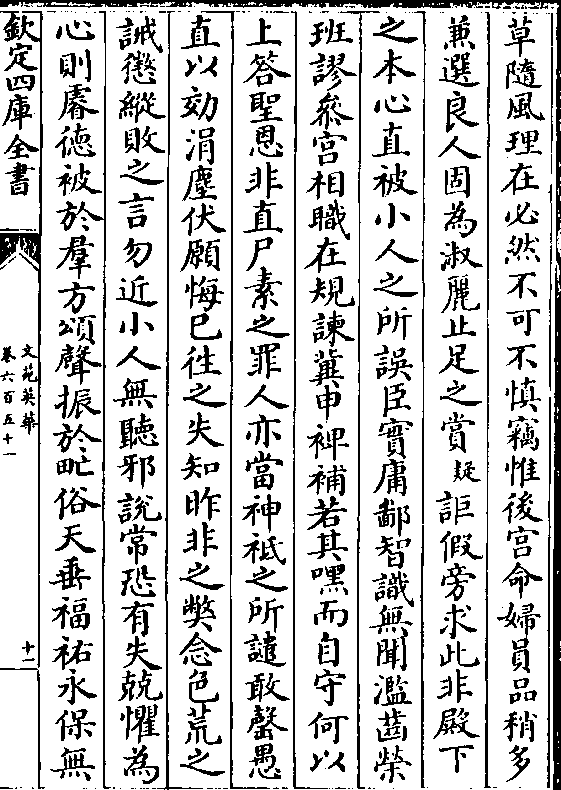 草隨風理在必然不可不慎竊惟後宮命婦員品稍多
兼選良人固為淑麗止足之賞疑詎假旁求此非殿下
之本心直被小人之所誤臣實庸鄙智識無聞濫齒榮
班謬叅宫相職在規諫冀申裨補若其嘿而自守何以
上答聖恩非直尸素之罪人亦當神祇之所譴敢罄愚
直以効涓塵伏願悔已往之失知昨非之弊念色荒之
誡懲縱敗之言勿近小人無聽邪説常恐有失兢懼為
心則睿徳被於羣方頌聲振於甿俗天垂福祐永保無
欽定四庫全書
文苑英華
卷六百五十一
十一